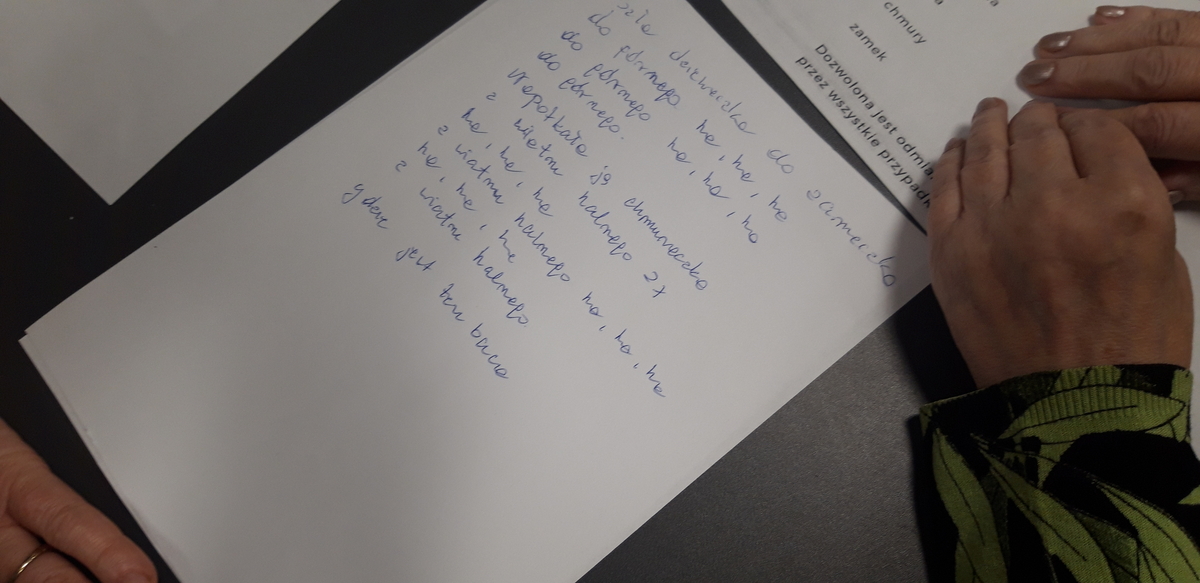 szła dzieweczka do zameczko
do górnego ha, ha, ha
do górnego ha, ha, ha
do górnego.
Napotkała ją chmureczka
z wiatru halnego 2x
ha, ha, ha
z wiatru halnego ha, ha, ha
ha, ha, ha
z wiatru halnego.
gdzie jest ten baca
chmury
zamek
Dozwolona jest odmia
przez wszystkie przypadk